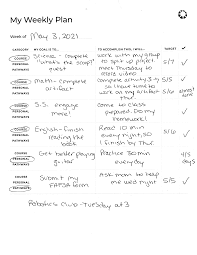 My Weekly Plan
Week of May 3, 2021
CATEGORY MY GOAL IS TO... TO ACCOMPLISH THIS, I WILL... TARGET ✓
COURSE PERSONAL PATHWAYS
Science - complete "What's the scoop?" quest
work with my group to split up project
meet Thursday to
video
5/7 ✓
COURSE PERSONAL PATHWAYS
Math - complete artifact
complete activity 3
so I have time to
work on my artifact
this
5/5 ✓
5/6 almost done
COURSE PERSONAL PATHWAYS
S.S. engage more!
Come to class
prepared. Do my
homework!
✓
COURSE PERSONAL PATHWAYS
English - finish reading the book
Read 10 min
every night, so
I finish by Thur
5/6 ✓
COURSE PERSONAL PATHWAYS
Get better playing guitar
Practice 30 min
everyday
4/5 days
COURSE PERSONAL PATHWAYS
Submit my FAFSA form
Ask mom to help
me Wed night
5/5 ✓
Robotics Club - Tuesday at 3